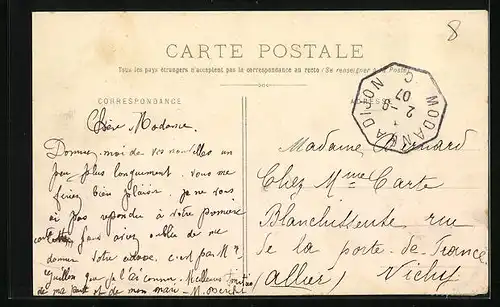 8
CARTE POSTALE
Tous les pays étrangers n'acceptent pas la correspondance au recto (Se renseigner à la Poste)
CORRESPONDANCE
ADRESSE
MODANE A DIJON
2-8
07
C
Chère Madame.
Donnez-moi de vos nouvelles un
peu plus longuement, vous me
feriez bien plaisir, je ne vous
ai pas repondu à votre premiere
vous aviez oublié de me
donner votre adresse, c'est par Mme
que je l'ai connue. Meilleures
de ma part et de mon mari M.
Madame
Chez Mme Carte
Blanchisseuse, rue
de la porte de France
Vichy
(Allier)